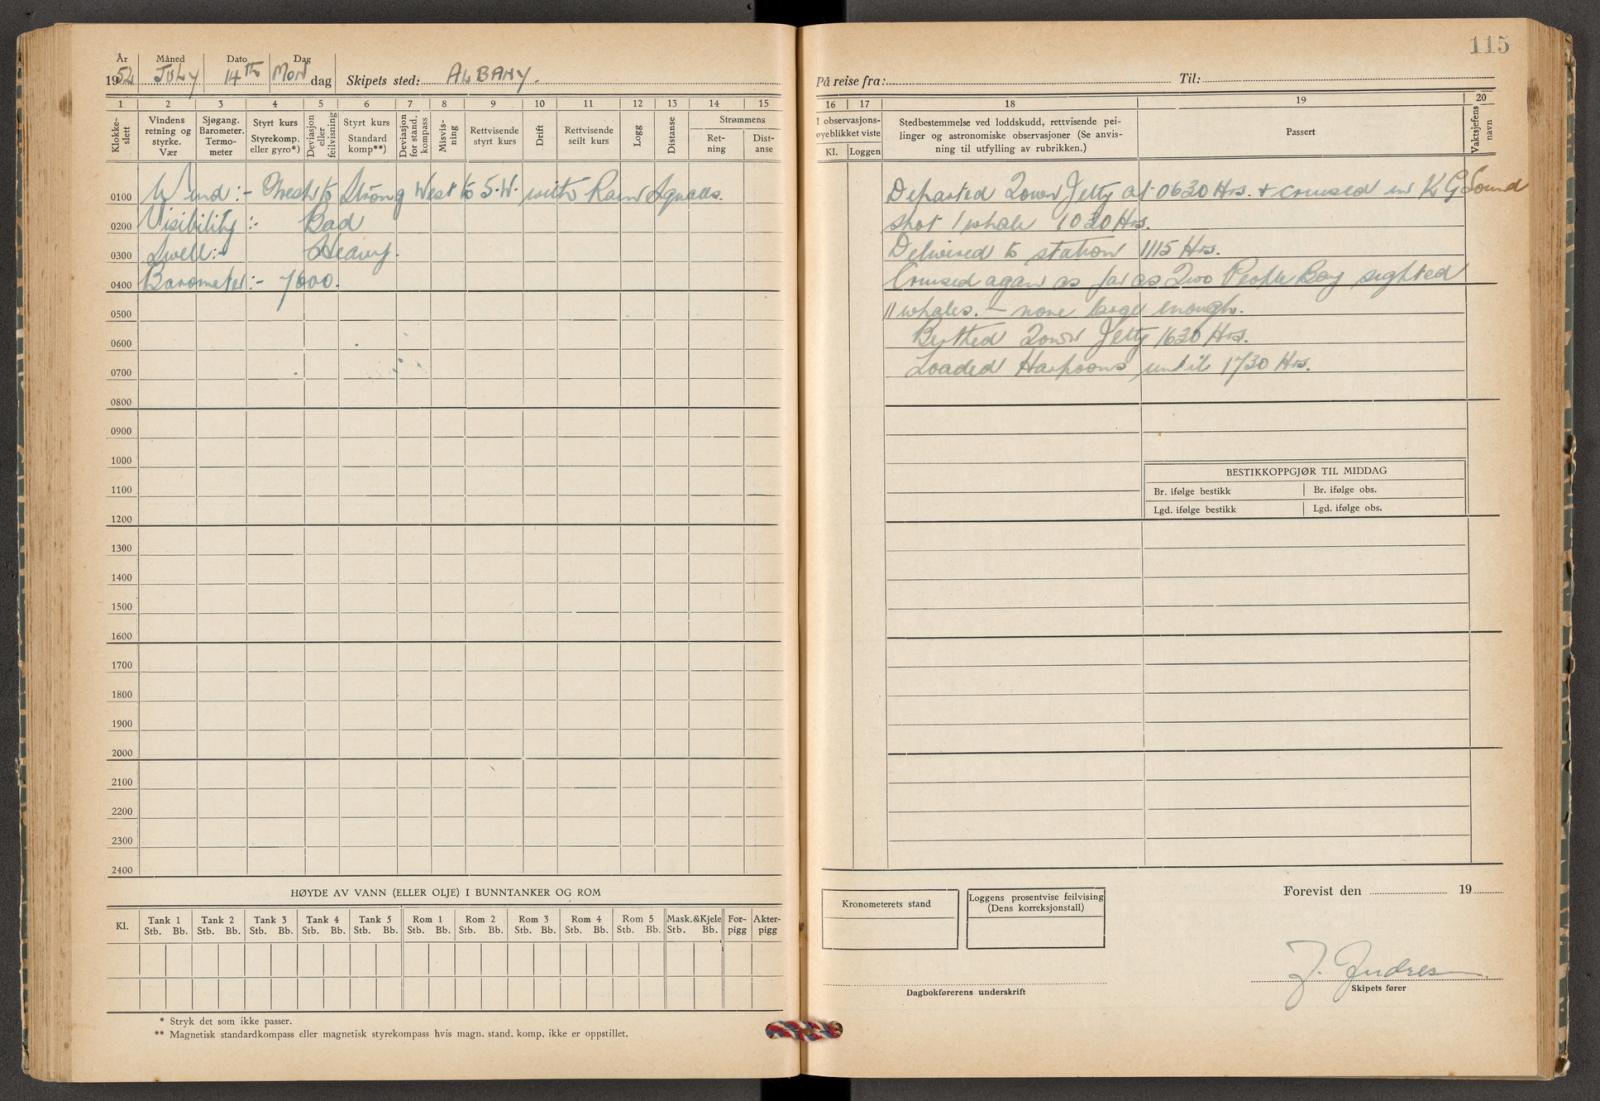 115
År Måned Dato Dag
1952 JULY 14th MON dag Skipets sted: ALBANY.
På reise fra: Til:
1 2 3 4 5 6 7 8 9 10 11 12 13 14 15
16 17 18 19 20
Klokke-slett
Vindens retning og styrke. Vær
Sjøgang. Barometer. Termo-meter
Styrt kurs Styrekomp. eller gyro*)
Deviasjon eller feilvisning
Styrt kurs Standard komp**)
Deviasjon for stand. kompass
Misvis-ning
Rettvisende styrt kurs
Drift
Rettvisende seilt kurs
Logg
Distanse
Strømmens
Ret-ning
Dist-anse
I observasjons-øyeblikket viste
Kl. Loggen
Stedbestemmelse ved loddskudd, rettvisende pei-
linger og astronomiske observasjoner (Se anvis-
ning til utfylling av rubrikken.)
Passert
Vaktsjefens navn
0100 Wind :- Fresh to Strong West to S.W. with Rain Squalls.
0200 Visibility :- Bad
0300 Swell :- Heavy.
0400 Barometer :- 7600.
0500
0600
0700
0800
0900
1000
1100
1200
1300
1400
1500
1600
1700
1800
1900
2000
2100
2200
2300
2400
Departed Town Jetty at 0630 Hrs. + cruised in K G Sound
shot 1 whale 1030 Hrs.
Delivered to station 1115 Hrs.
Cruised again as far as Two People Bay sighted
11 whales. - none large enough.
Berthed Town Jetty 1630 Hrs.
Loaded Harpoons until 1730 Hrs.
BESTIKKOPPGJØR TIL MIDDAG
Br. ifølge bestikk Br. ifølge obs.
Lgd. ifølge bestikk Lgd. ifølge obs.
HØYDE AV VANN (ELLER OLJE) I BUNNTANKER OG ROM
Kl. Tank 1 Tank 2 Tank 3 Tank 4 Tank 5 Rom 1 Rom 2 Rom 3 Rom 4 Rom 5 Mask.&Kjele For-pigg Akter-pigg
Stb. Bb. Stb. Bb. Stb. Bb. Stb. Bb. Stb. Bb. Stb. Bb. Stb. Bb. Stb. Bb. Stb. Bb. Stb. Bb. Stb. Bb.
* Stryk det som ikke passer.
** Magnetisk standardkompass eller magnetisk styrekompass hvis magn. stand. komp. ikke er oppstillet.
Kronometerets stand
Loggens prosentvise feilvising
(Dens korreksjonstall)
Forevist den 19
Dagbokførerens underskrift
Skipets fører